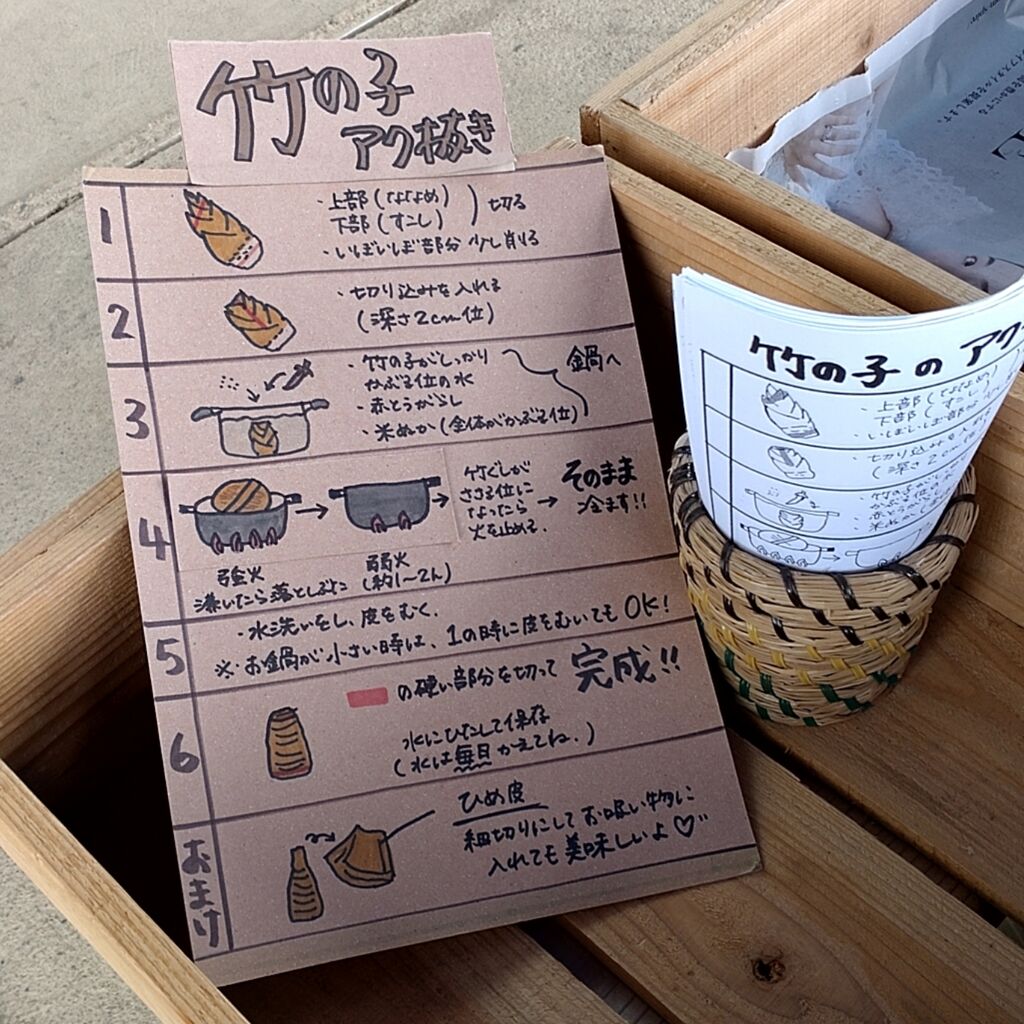 竹の子
アク抜き
1
・上部(ななめ)
下部(すこし)
切る
・いぼいぼ部分 少し削る
2
・切り込みを入れる
(深さ2cm位)
3
・竹の子がしっかり
かぶる位の水
・赤とうがらし
・米ぬか(全体がかぶる位)
鍋へ
4
強火
沸いたら落としぶた
弱火
(約1〜2h)
竹ぐしが
ささる位に
なったら
火を止める。
そのまま
冷ます!!
5
・水洗いをし、皮をむく。
※お鍋が小さい時は、1の時に皮をむいてもOK!
6
の硬い部分を切って 完成!!
水にひたして保存
(水は毎日かえてね。)
おまけ
ひめ皮
細切りにしてお吸い物に
入れても美味しいよ♡
竹の子の アク
・上部(ななめ)
下部(すこし)
・いぼいぼ部分
・切り込みを入
(深さ2c
・竹の子が
かぶる位の
・赤とうが
・米ぬか